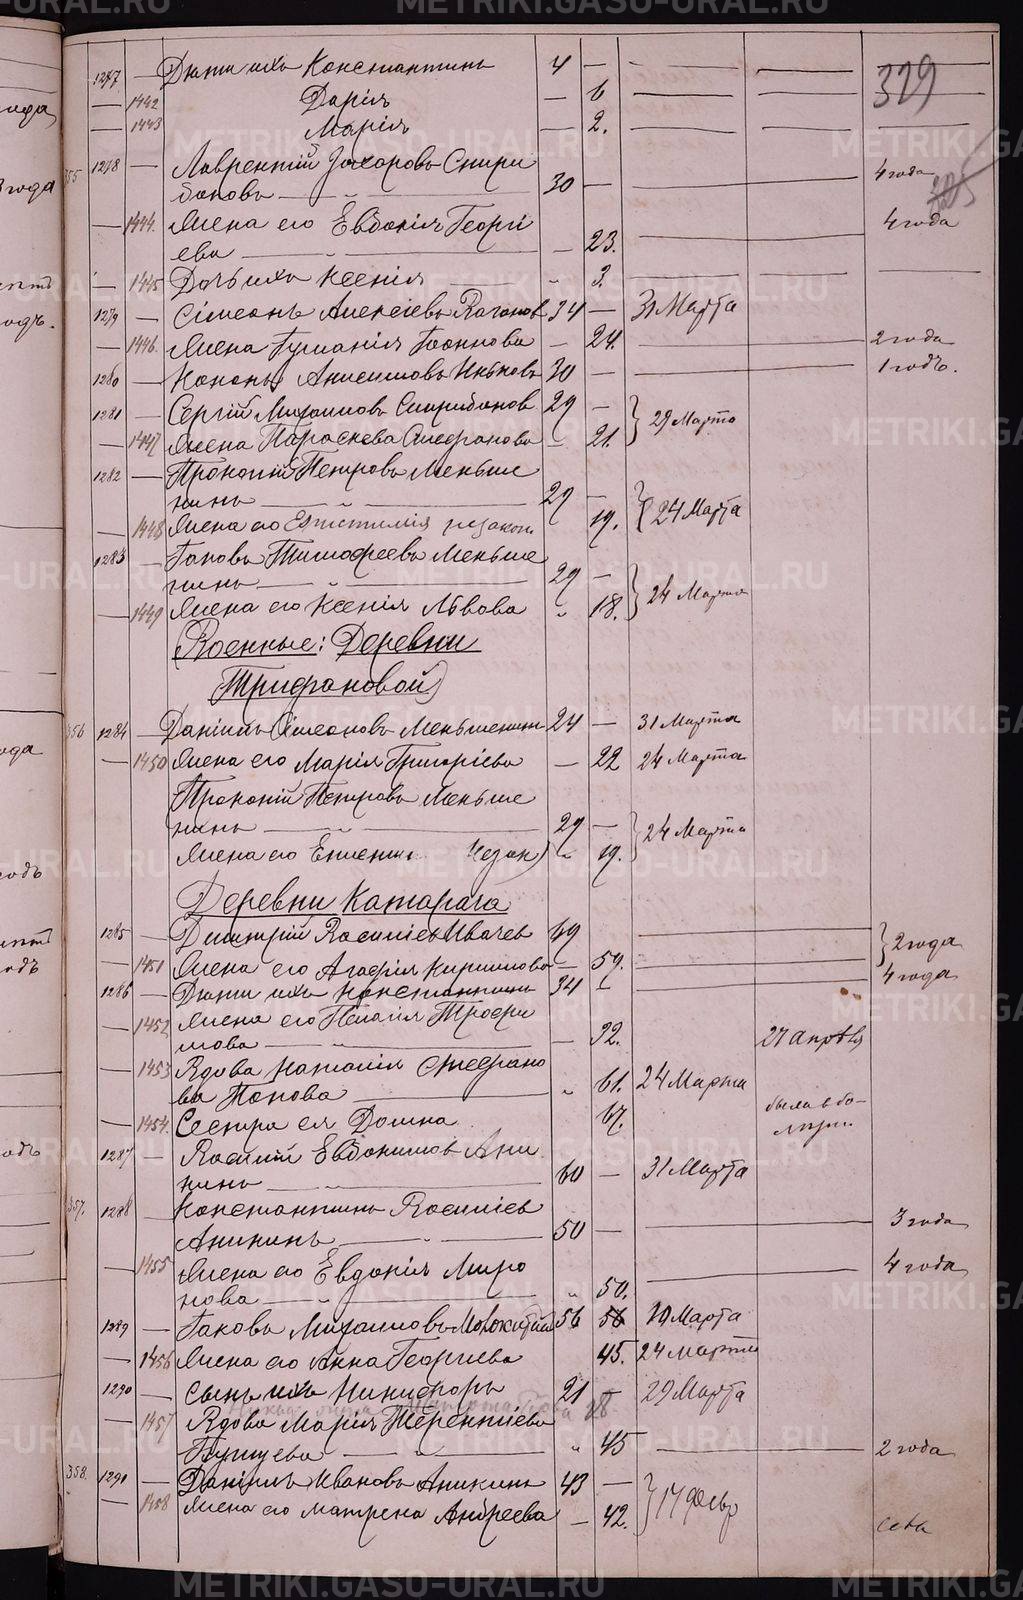 329
1277 — Дѣти ихъ Константинъ 4 —
— 1442 Дарія — 6
— 1443 Марія — 2.
355 1278 — Лаврентій Захаровъ Спири
доновъ 30 — 4 года
— 1444. Жена его Евдокія Георгі
ева — 23. 4 года
— 1445 Дочь ихъ Ксенія " 3
1279 — Сімеонъ Алексіевъ 34 — 31 Марта
— 1446. Жена Іоаннова — 24. 2 года
1280 — Кононъ Анисимовъ 30 — 1 годъ.
1281 — Сергій Михаиловъ Спиридонов 29 —
29 Марта
— 1447 Жена Параскева Стефанова — 21.
1282 — Прокопій Петровъ Меньше
нинъ 29 —
24 Марта
— 1448 Жена его 19.
1283 — Іаковъ Тимофеевъ Меньше
нинъ 29 —
24 Марта
— 1449 Жена его Ксенія Львова " 18.
(Военные: Деревни
Трифановой)
356 1284 — Даніилъ Сімеоновъ Меньшенинъ 24 — 31 Марта
— 1450 Жена его Марія Григоріева — 22 24 Марта
Прокопій Петровъ Меньше
нинъ 29 —
24 Марта
Жена его " 19.
Деревни Катарача
1285 — Димитрій Василіевъ 69
2 года
— 1451 Жена его Агафія Кириллова — 59.
1286 — Дѣти ихъ Константинъ 34 — 4 года
— 1452 Жена его Пелагія Трофи
мова — 32. 27 апрѣля
— 1453 Вдова Наталія Стефано
ва Попова " 61. 24 Марта
— 1454. Сестра ея Домна 67. была в бо-
1287 — Василій Евдокимов Ани
кинъ 60 — 31 Марта
357. 1288 Константинъ Василіев
Аникинъ 50 — 3 года
— 1455 Жена его Евдокія Миро
нова " 50. 4 года
1289 — Іаковъ Михаиловъ 56 56 Марта
— 1456 Жена его Анна Георгіева 45. 24 Марта
1290 — Сынъ ихъ Никифоръ 21 — 29 Марта
— 1457 Вдова Марія Терентіева
" 45 2 года
358. 1291 — Даніилъ Ивановъ Аникинъ 43 —
17 февр
— 1458 Жена его Матрена Андреева — 42.
METRIKI.GASO-URAL.RU